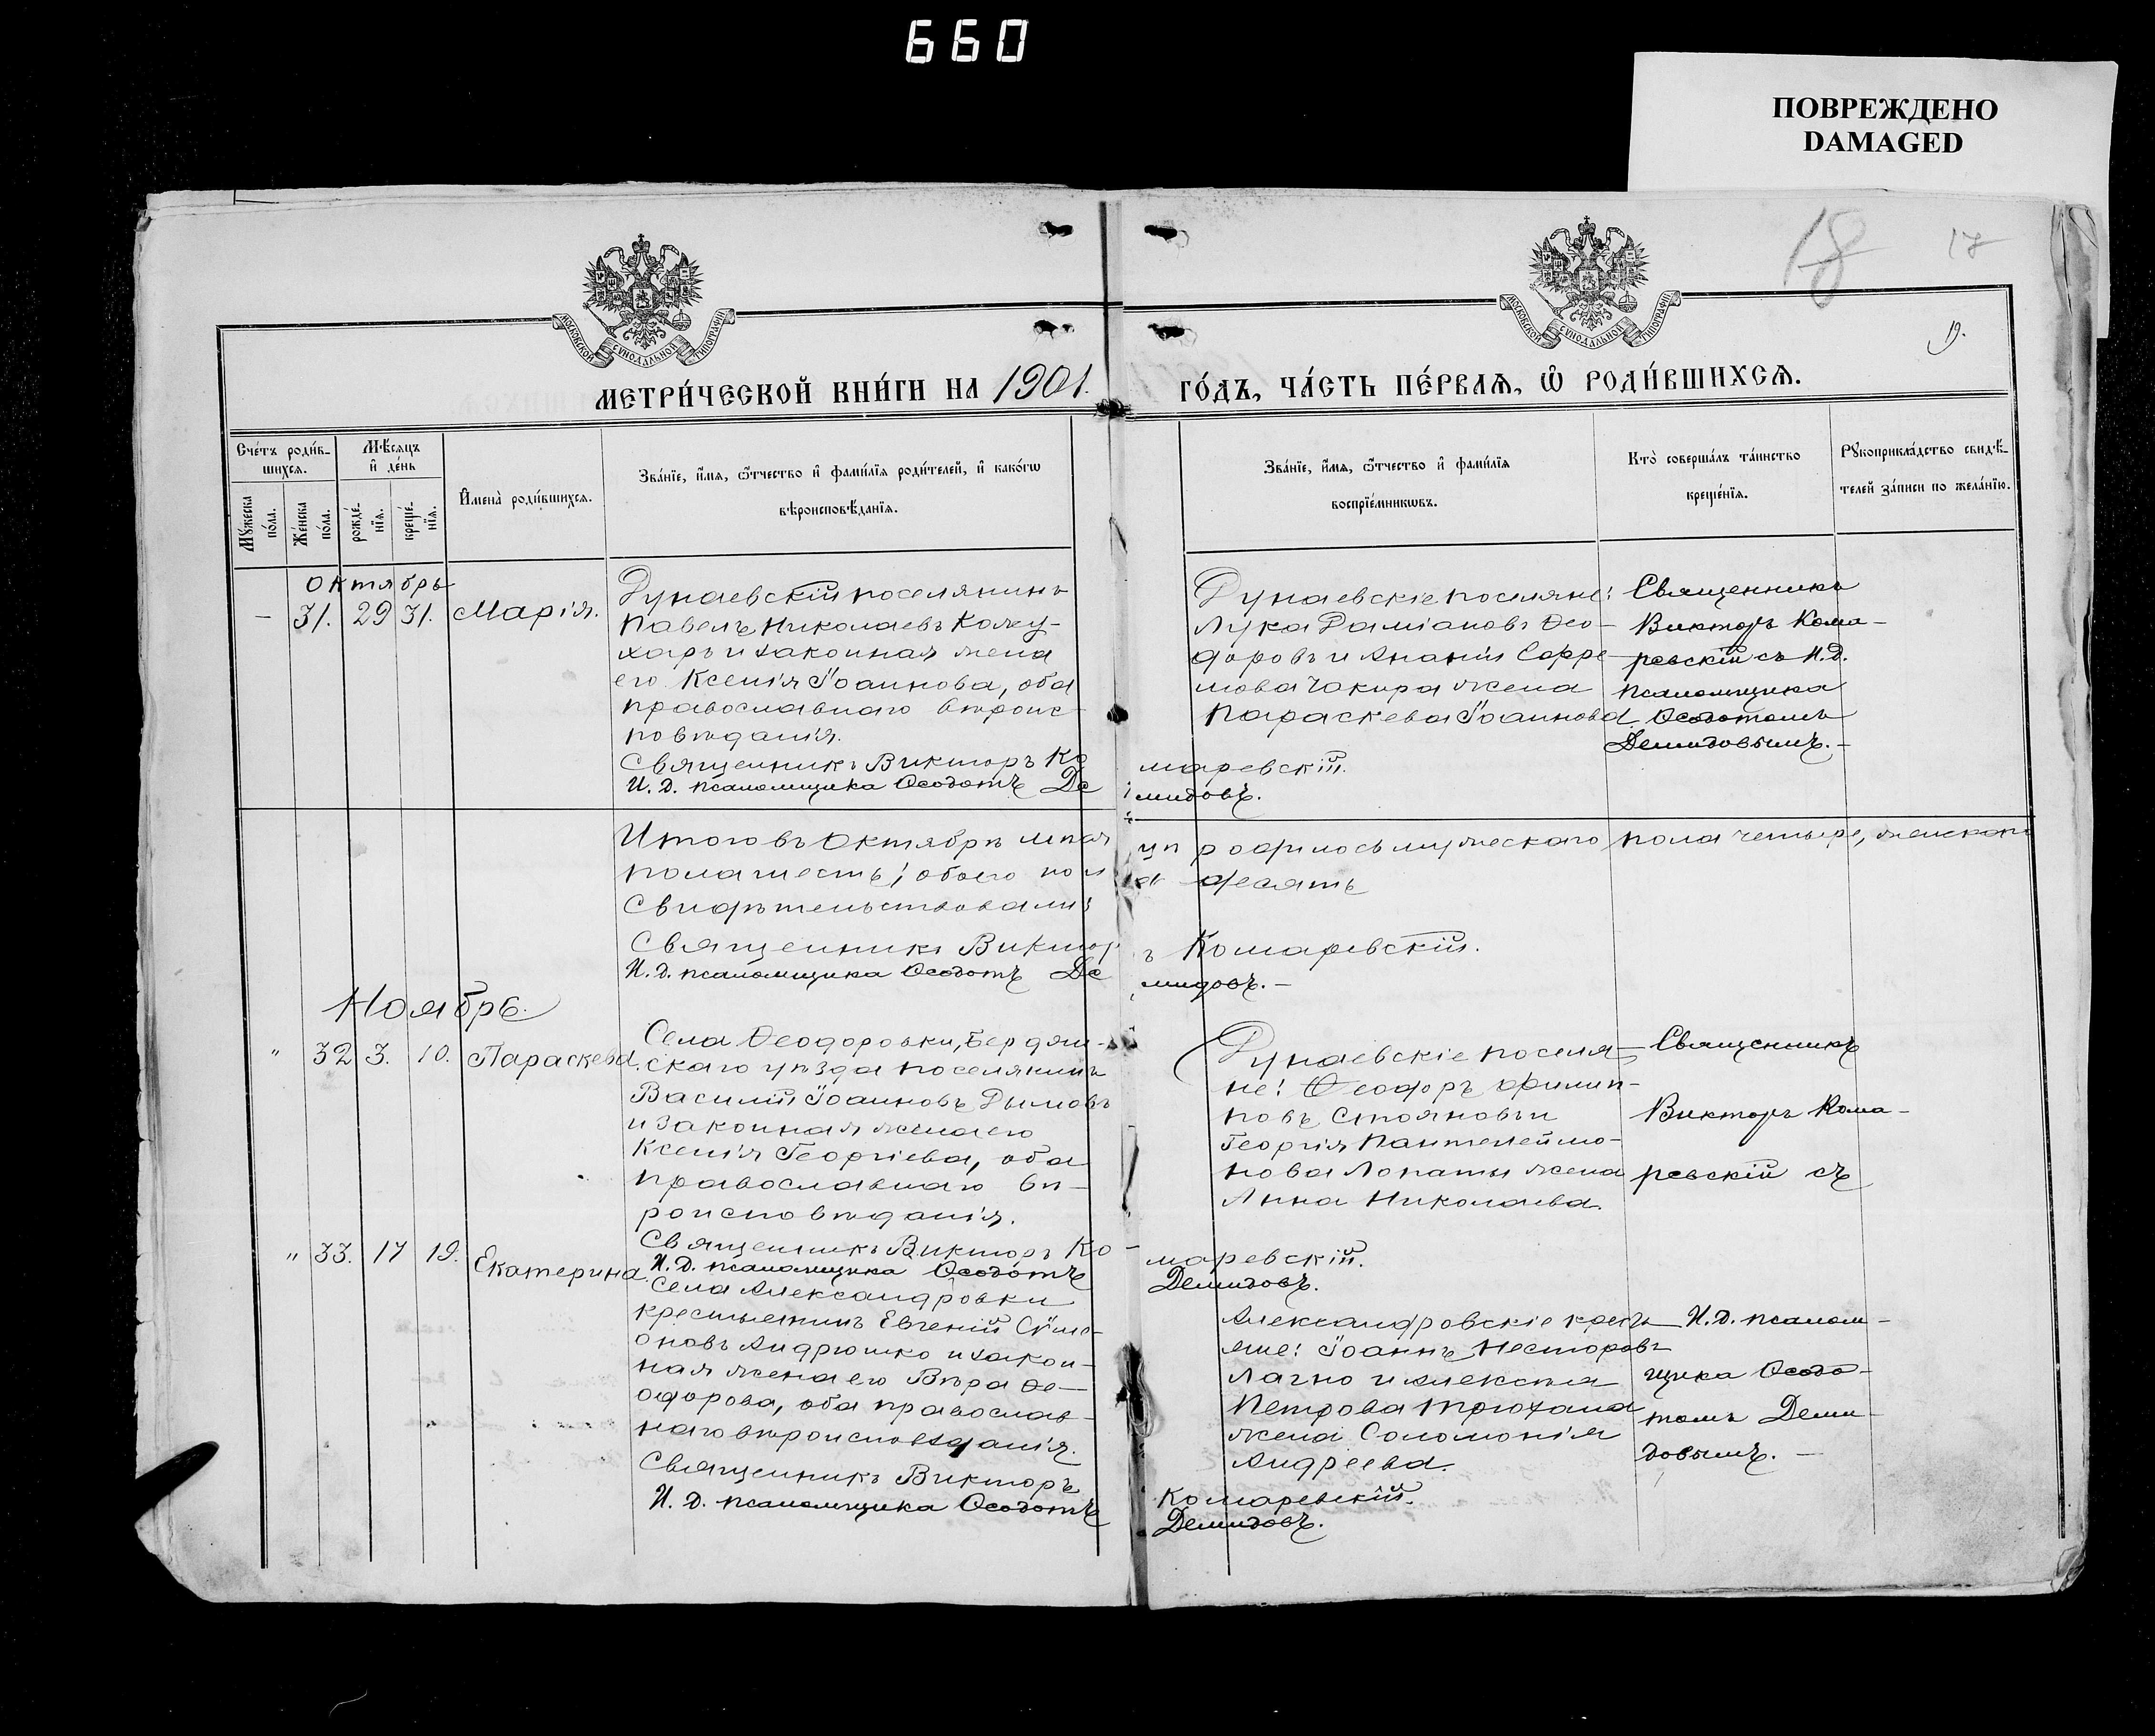 660
ПОВРЕЖДЕНО
DAMAGED
18
17
19.
МОСКОВСКОЙ СѴНОДАЛЬНОЙ ТИПОГРАФІИ
МОСКОВСКОЙ СѴНОДАЛЬНОЙ ТИПОГРАФІИ
МЕТРИ́ЧЕСКОЙ КНИ́ГИ НА 1901.
ГО́ДЪ, ЧА́СТЬ ПЕ́РВАѦ, Ѡ РОДИ́ВШИХСѦ.
Сче́тъ роди́в-
шихсѧ.
Мѣ́сѧцъ
и҆ де́нь
Мꙋ́жеска
по́ла.
Же́нска
по́ла.
рожде́-
нїѧ.
креще́-
нїѧ.
И҆мена̀ роди́вшихсѧ.
Зва́нїе, и҆́мѧ, ѻ҆́тчество и҆ фами́лїѧ роди́телей, и҆ како́гѡ
вѣроисповѣ́данїѧ.
Зва́нїе, и҆́мѧ, ѻ҆́тчество и҆ фами́лїѧ
воспрїе́мникѡвъ.
Кто̀ соверша́лъ та́инство
креще́нїѧ.
Рꙋкоприкла́дство свидѣ́-
телей за́писи по жела́нїю.
Октябрь
— 31. 29 31. Марія.
Дунаевскій поселянинъ
Павелъ Николаевъ Кожу-
харъ и законная жена
его Ксенія Іоаннова, оба
православнаго вѣроис-
повѣданія.
Священникъ Викторъ Ко
И. д. псаломщика Ѳеодотъ Де
Дунаевскіе поселяне:
Лука Даміановъ Ѳео-
доровъ и Ананіи
Чакира жена
Параскева Іоаннова
маревскій.
мидовъ.
Священникъ
Викторъ Кома-
ревскій съ и. д.
псаломщика
Ѳеодотомъ
Демидовымъ. —
Итого въ Октябрѣ мѣся
цѣ родилось мужескаго пола четыре, женскаго
пола шесть; обоего пол
а десять
Свидѣтельствовали:
Священникъ Виктор
ъ Комаревскій.
И. д. псаломщика Ѳеодотъ Де
мидовъ. —
Ноябрь.
" 32 3. 10. Параскева.
Села Ѳеодоровки, Бердян-
скаго уѣзда поселянинъ
Василій Іоанновъ Дымовъ
и законная жена его
Ксенія Георгіева, оба
православнаго вѣ-
роисповѣданія.
Священникъ Викторъ Ко-
И. д. псаломщика Ѳеодотъ
Дунаевскіе поселя-
не: Ѳеодоръ Филип-
повъ Стояновъ и
Георгія Пантелеймо-
нова Лопаты жена
Анна Николаева.
маревскій.
Демидовъ.
Священникъ
Викторъ Кома-
ревскій съ
И. д. псалом-
щика Ѳеодо-
томъ Деми-
довымъ. —
" 33. 17 19. Екатерина.
Села Александровки
крестьянинъ Евгеній Сѵме-
оновъ Андрюшко и закон-
ная жена его Вѣра Ѳе-
одорова, оба православ-
наго вѣроисповѣданія.
Священникъ Викторъ
И. д. псаломщика Ѳеодотъ
Александровскіе кресть
яне: Іоаннъ Несторовъ
Лагно и Алексѣя
Петрова Трюхана
жена Соломонія
Андреева.
Комаревскій.
Демидовъ.